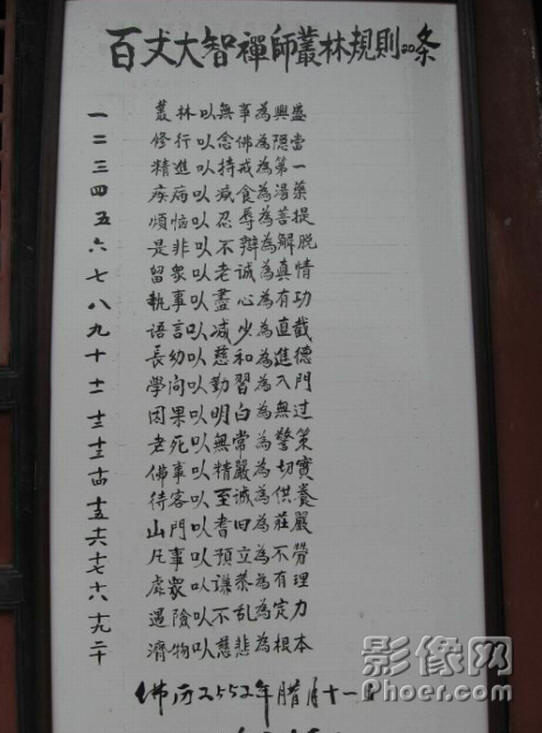 百丈大智禪師叢林規則二十条
一 叢林以無事為興盛
二 修行以念佛為隱當
三 精進以持戒為第一
四 疾病以减食為湯藥
五 煩恼以忍辱為菩提
六 是非以不辯為解脱
七 留衆以老诚為真情
八 執事以盡心為有功
九 語言以减少為直截
十 長幼以慈和為進德
十一 學问以勤習為入門
十二 因果以明白為無过
十三 老死以無常為警策
十四 佛事以精嚴為切實
十五 待客以至诚為供養
十六 山門以耆旧為莊嚴
十七 凡事以預立為不勞
十八 處衆以谦恭為有理
十九 遇險以不乱為定力
二十 濟物以慈悲為根本
佛历2552年腊月十一日
影像网
Phoer.com